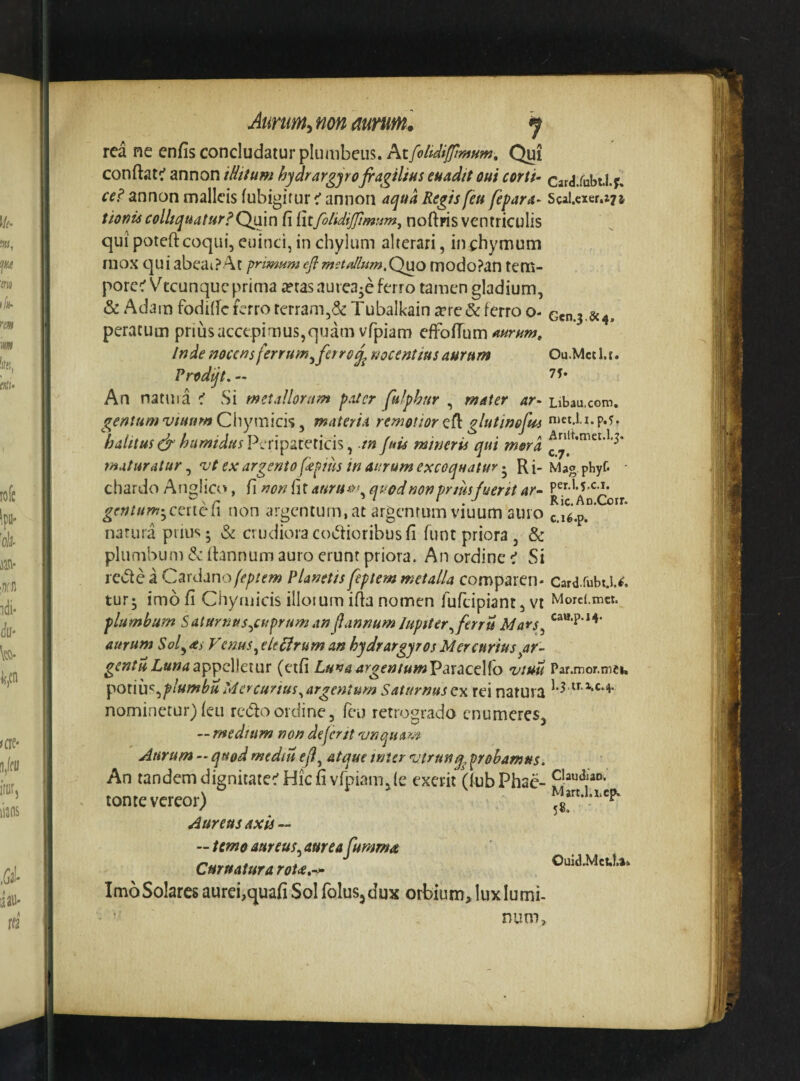 Aurum, non aurum. 7
reâ ne enſis concludatur plumbeus. At ſolidiſſimum. Qui
conſtat? annon illitum hydrargyro fragilius euadit oui corti- Card.ſubt.l.5.
ce? annon malleis ſubigitur? annon aquâ Regis ſeu ſepara- Scal.exer.272
tionis colliquatur? Quin ſi ſit ſolidiſſimum, noſtris ventriculis
qui poteſt coqui, euinci, in chylum alterari, in chymum
mox qui abeat? At primum eſt metallum. Quo modo? an tem-
pore? Vtcunque prima ætas aurea; è ferro tamen gladium,
& Adam fodiſſe ferro terram, & Tubalkain ære & ferro o- Gen.3.&4.
peratum priùs accepimus, quàm vſpiam effoſſum aurum.
Inde nocens ferrum, ferroq́, nocentius aurum Ou.Met.l.1.
Prodijt. -- 75.
An naturâ? Si metallorum pater ſulphur, mater ar- Libau.com.
gentum viuum Chymicis, materia remotior eſt glutinoſus met.l.1.p.5.
halitus & humidus Peripateticis, in ſuis mineris qui morâ Ariſt.met.l.3.
c.7.
maturatur, vt ex argento ſæpiùs in aurum excoquatur; Ri- Mag. phyſ.
chardo Anglico, ſi non ſit aurum, quod non priùs fuerit ar- per.l.5.c.1.
Ric.An.Corr.
gentum; certè ſi non argentum, at argentum viuum auro c.16.p.
naturâ priùs; & crudiora coctioribus ſi ſunt priora, &
plumbum & ſtannum auro erunt priora. An ordine? Si
rectè à Cardano ſeptem Planetis ſeptem metalla comparen- Card.ſubt.l.6.
tur; imò ſi Chymicis illorum iſta nomen ſuſcipiant, vt Moreſ.met.
plumbum Saturnus, cuprum an ſtannum Iupiter, ferrũ Mars, cau.p.14.
aurum Sol, æs Venus, electrum an hydrargyros Mercurius, ar-
gentũ Luna appelletur (etſi Luna argentum Paracelſo viuũ Par.mor.met.
potiùs, plumbũ Mercurius, argentum Saturnus ex rei natura l.3.tr.2.c.4.
nominetur) ſeu recto ordine, ſeu retrogrado enumeres,
-- medium non deſerit vnquam
Aurum -- quod mediũ eſt, atque inter vtrunq́, probamus.
An tandem dignitate? Hîc ſi vſpiam, ſe exerit (ſub Phaë- Claudian.
tonte vereor) Mart.l.1.ep.
58.
Aureus axis --
-- temo aureus, aurea ſummæ
Curuatura rotæ. -- Ouid.Met.l.2.
Imò Solares aurei, quaſi Sol ſolus, dux orbium, lux lumi-
num,